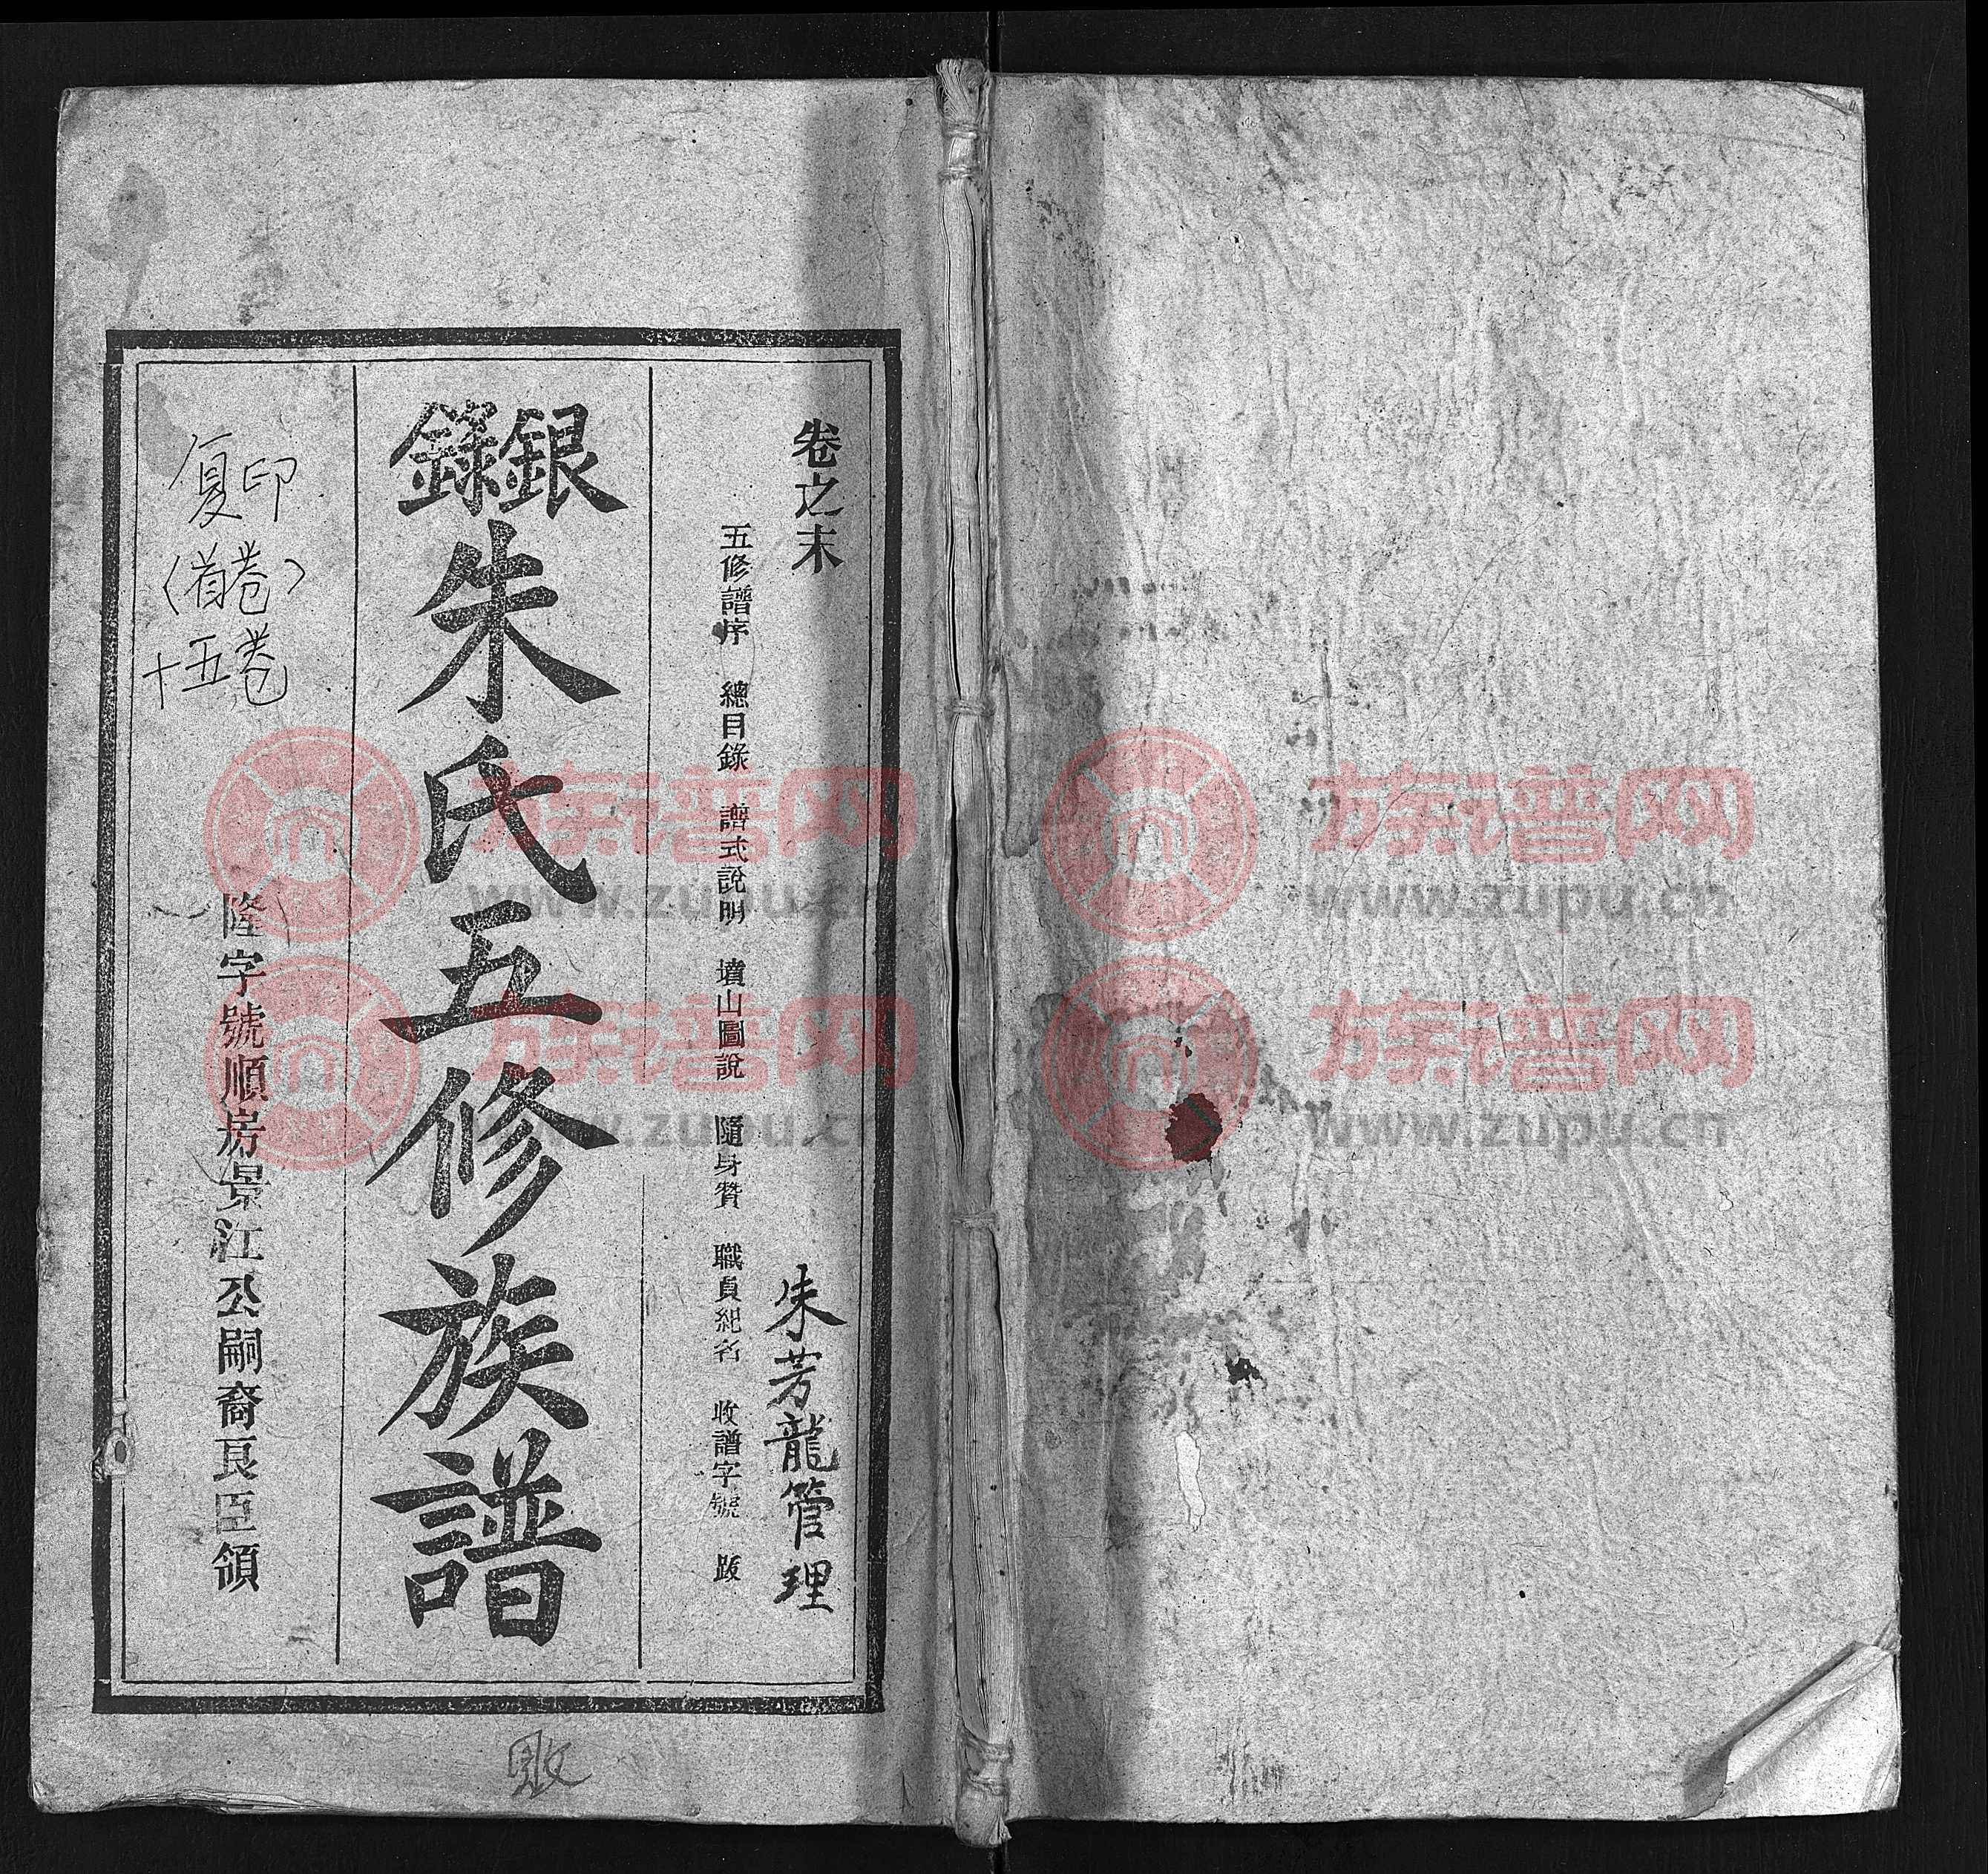 卷之末
朱芳龍管理
五修譜序 總目錄 譜式說明 墳山圖說 隨身贊 職員紀名 收譜字號 跋
銀錄朱氏五修族譜
复印
(首卷)
十五卷
隆字號順房景江公嗣裔良臣領
族谱网
www.zupu.cn
族谱网
www.zupu.cn
族谱网
www.zupu.cn
族谱网
www.zupu.cn